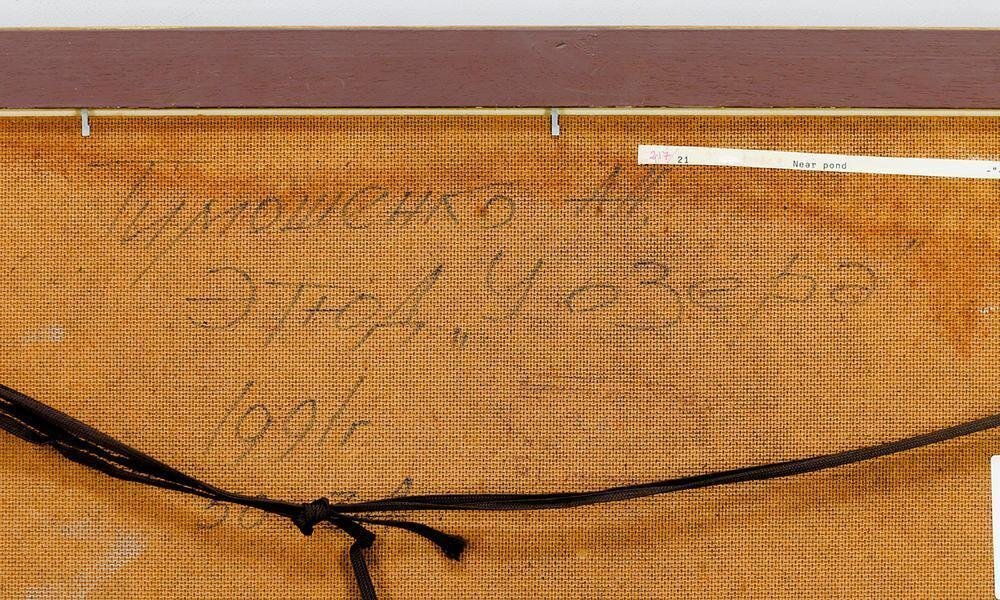 217 21 Near pond
Тимошенко А.
Этюд „У озера"
1991г